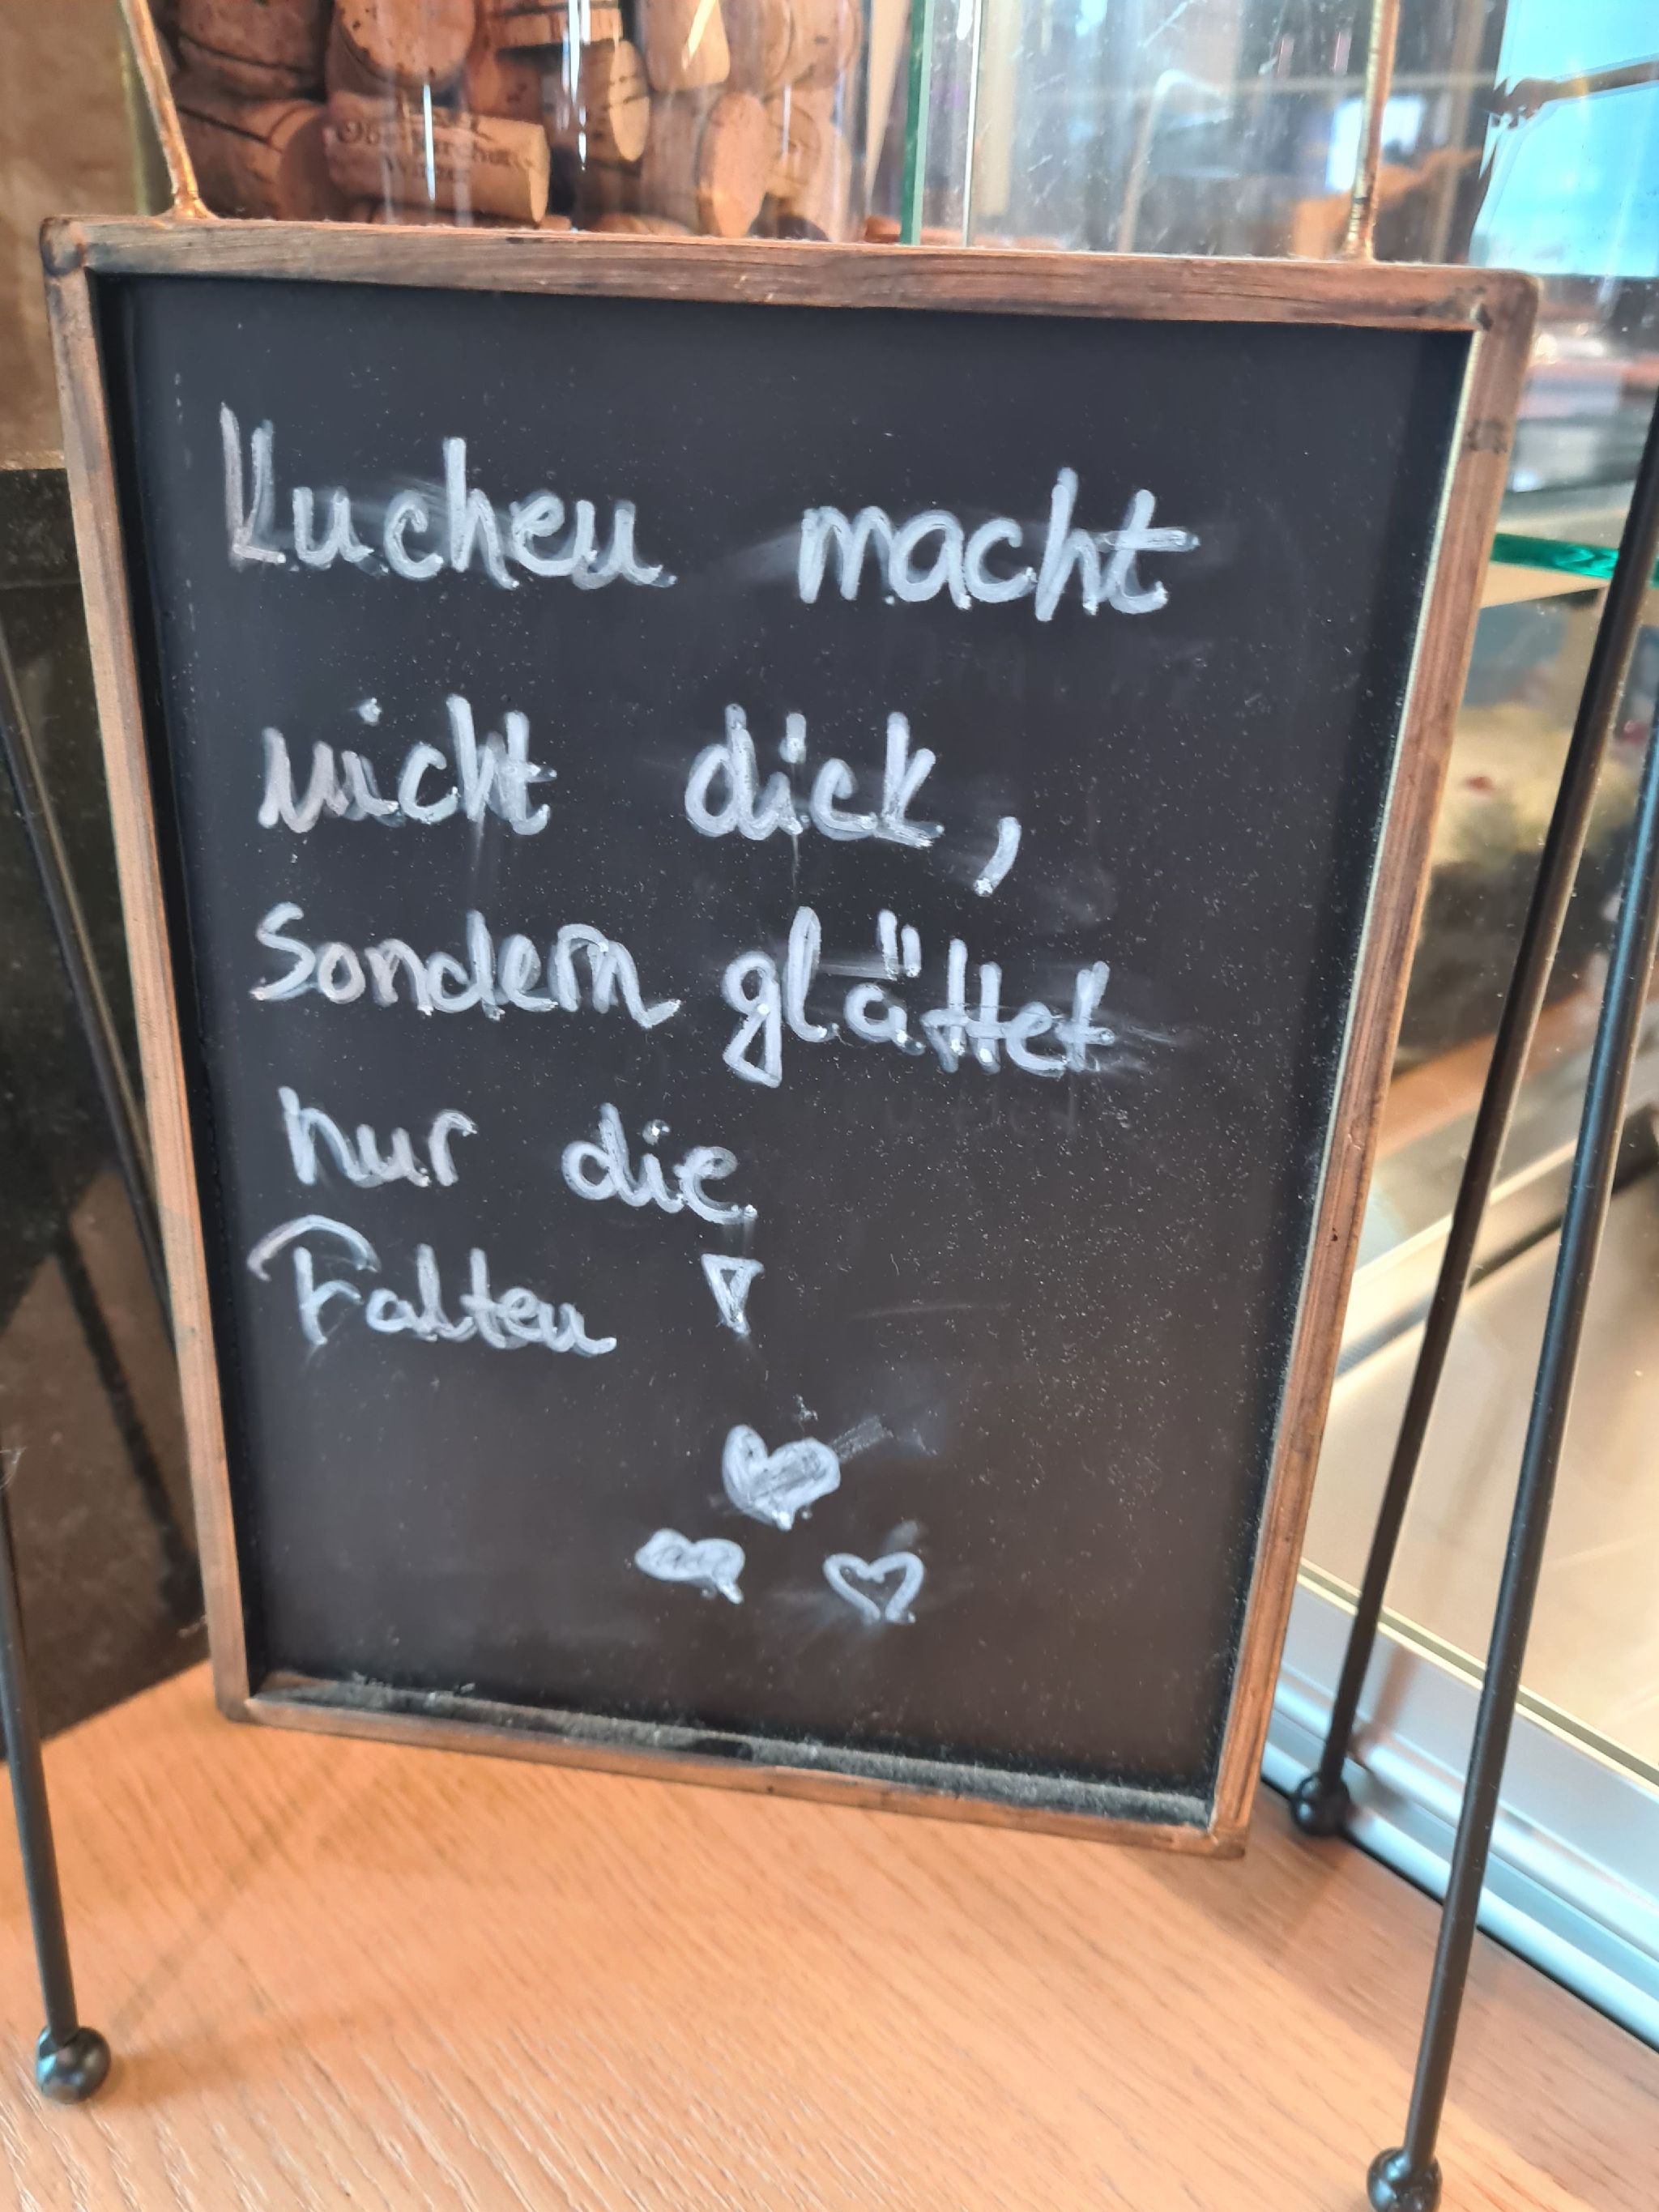 Oberkircher
Winzer
Kuchen macht
nicht dick,
Sondern glättet
nur die
Falten !